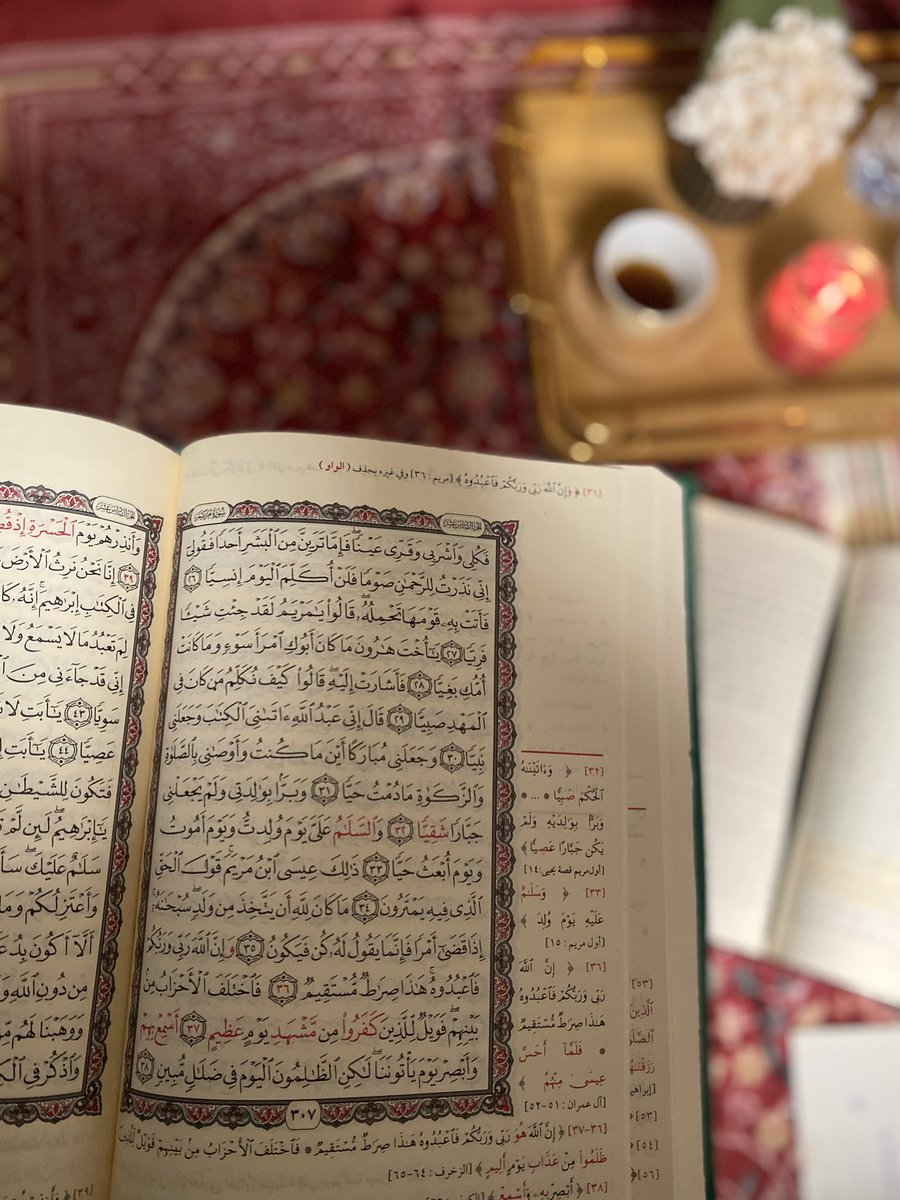 [٣٦] ﴿ وَإِنَّ ٱللَّهَ رَبِّى وَرَبُّكُمْ فَٱعْبُدُوهُ ﴾ [مريم : ٣٦] وفي غيره بحذف ( الواو )
فَكُلِى وَٱشْرَبِى وَقَرِّى عَيْنًا ۖ فَإِمَّا تَرَيِنَّ مِنَ ٱلْبَشَرِ أَحَدًا فَقُولِىٓ
إِنِّى نَذَرْتُ لِلرَّحْمَـٰنِ صَوْمًا فَلَنْ أُكَلِّمَ ٱلْيَوْمَ إِنسِيًّا ٢٦
فَأَتَتْ بِهِۦ قَوْمَهَا تَحْمِلُهُۥ ۖ قَالُوا۟ يَـٰمَرْيَمُ لَقَدْ جِئْتِ شَيْـًٔا
فَرِيًّا ٢٧ يَـٰٓأُخْتَ هَـٰرُونَ مَا كَانَ أَبُوكِ ٱمْرَأَ سَوْءٍ وَمَا كَانَتْ
أُمُّكِ بَغِيًّا ٢٨ فَأَشَارَتْ إِلَيْهِ ۖ قَالُوا۟ كَيْفَ نُكَلِّمُ مَن كَانَ فِى
ٱلْمَهْدِ صَبِيًّا ٢٩ قَالَ إِنِّى عَبْدُ ٱللَّهِ ءَاتَىٰنِىَ ٱلْكِتَـٰبَ وَجَعَلَنِى
نَبِيًّا ٣٠ وَجَعَلَنِى مُبَارَكًا أَيْنَ مَا كُنتُ وَأَوْصَـٰنِى بِٱلصَّلَوٰةِ
وَٱلزَّكَوٰةِ مَا دُمْتُ حَيًّا ٣١ وَبَرًّۢا بِوَٰلِدَتِى وَلَمْ يَجْعَلْنِى
جَبَّارًا شَقِيًّا ٣٢ وَٱلسَّلَـٰمُ عَلَىَّ يَوْمَ وُلِدتُّ وَيَوْمَ أَمُوتُ
وَيَوْمَ أُبْعَثُ حَيًّا ٣٣ ذَٰلِكَ عِيسَى ٱبْنُ مَرْيَمَ ۚ قَوْلَ ٱلْحَقِّ
ٱلَّذِى فِيهِ يَمْتَرُونَ ٣٤ مَا كَانَ لِلَّهِ أَن يَتَّخِذَ مِن وَلَدٍ ۖ سُبْحَـٰنَهُۥٓ ۚ
إِذَا قَضَىٰٓ أَمْرًا فَإِنَّمَا يَقُولُ لَهُۥ كُن فَيَكُونُ ٣٥ وَإِنَّ ٱللَّهَ رَبِّى وَرَبُّكُمْ
فَٱعْبُدُوهُ ۚ هَـٰذَا صِرَٰطٌ مُّسْتَقِيمٌ ٣٦ فَٱخْتَلَفَ ٱلْأَحْزَابُ مِنۢ
بَيْنِهِمْ ۖ فَوَيْلٌ لِّلَّذِينَ كَفَرُوا۟ مِن مَّشْهَدِ يَوْمٍ عَظِيمٍ ٣٧ أَسْمِعْ بِهِمْ
وَأَبْصِرْ يَوْمَ يَأْتُونَنَا ۖ لَـٰكِنِ ٱلظَّـٰلِمُونَ ٱلْيَوْمَ فِى ضَلَـٰلٍ مُّبِينٍ ٣٨
٣٠٧
[٣٢] ﴿ وَءَاتَيْنَـٰهُ
ٱلْحُكْمَ صَبِيًّا * ... *
وَبَرًّۢا بِوَٰلِدَيْهِ وَلَمْ
يَكُن جَبَّارًا عَصِيًّا ﴾
[أول مريم قصة يحيى : ١٤]
[٣٣] ﴿ وَسَلَـٰمٌ
عَلَيْهِ يَوْمَ وُلِدَ ﴾
[أول مريم : ١٥]
[٣٦] ﴿ إِنَّ ٱللَّهَ
رَبِّى وَرَبُّكُمْ فَٱعْبُدُوهُ
هَـٰذَا صِرَٰطٌ مُّسْتَقِيمٌ
* فَلَمَّآ أَحَسَّ
عِيسَىٰ مِنْهُمُ ﴾
[آل عمران : ٥١-٥٢]
[٣٦-٣٧] ﴿ إِنَّ ٱللَّهَ هُوَ رَبِّى وَرَبُّكُمْ فَٱعْبُدُوهُ هَـٰذَا صِرَٰطٌ مُّسْتَقِيمٌ * فَٱخْتَلَفَ ٱلْأَحْزَابُ مِنۢ بَيْنِهِمْ فَوَيْلٌ لِّلَّذِينَ
ظَلَمُوا۟ مِنْ عَذَابِ يَوْمٍ أَلِيمٍ ﴾ [الزخرف : ٦٤-٦٥]
[٣٨] ﴿ أَبْصِرْ بِهِۦ وَأَسْمِعْ ﴾
وَأَنذِرْهُمْ يَوْمَ ٱلْحَسْرَةِ إِذْ
٣٩ إِنَّا نَحْنُ نَرِثُ ٱلْأَرْضَ
فِى ٱلْكِتَـٰبِ إِبْرَٰهِيمَ ۚ إِنَّهُۥ
لِمَ تَعْبُدُ مَا لَا يَسْمَعُ وَلَا
إِنِّى قَدْ جَآءَنِى مِنَ
سَوِيًّا ٤٣ يَـٰٓأَبَتِ لَا
عَصِيًّا ٤٤ يَـٰٓأَبَتِ
فَتَكُونَ لِلشَّيْطَـٰنِ
يَـٰٓإِبْرَٰهِيمُ ۖ لَئِن لَّمْ
سَلَـٰمٌ عَلَيْكَ ۖ
وَأَعْتَزِلُكُمْ وَمَا
أَلَّآ أَكُونَ
مِن دُونِ ٱللَّهِ
وَوَهَبْنَا لَهُم
وَٱذْكُرْ فِى